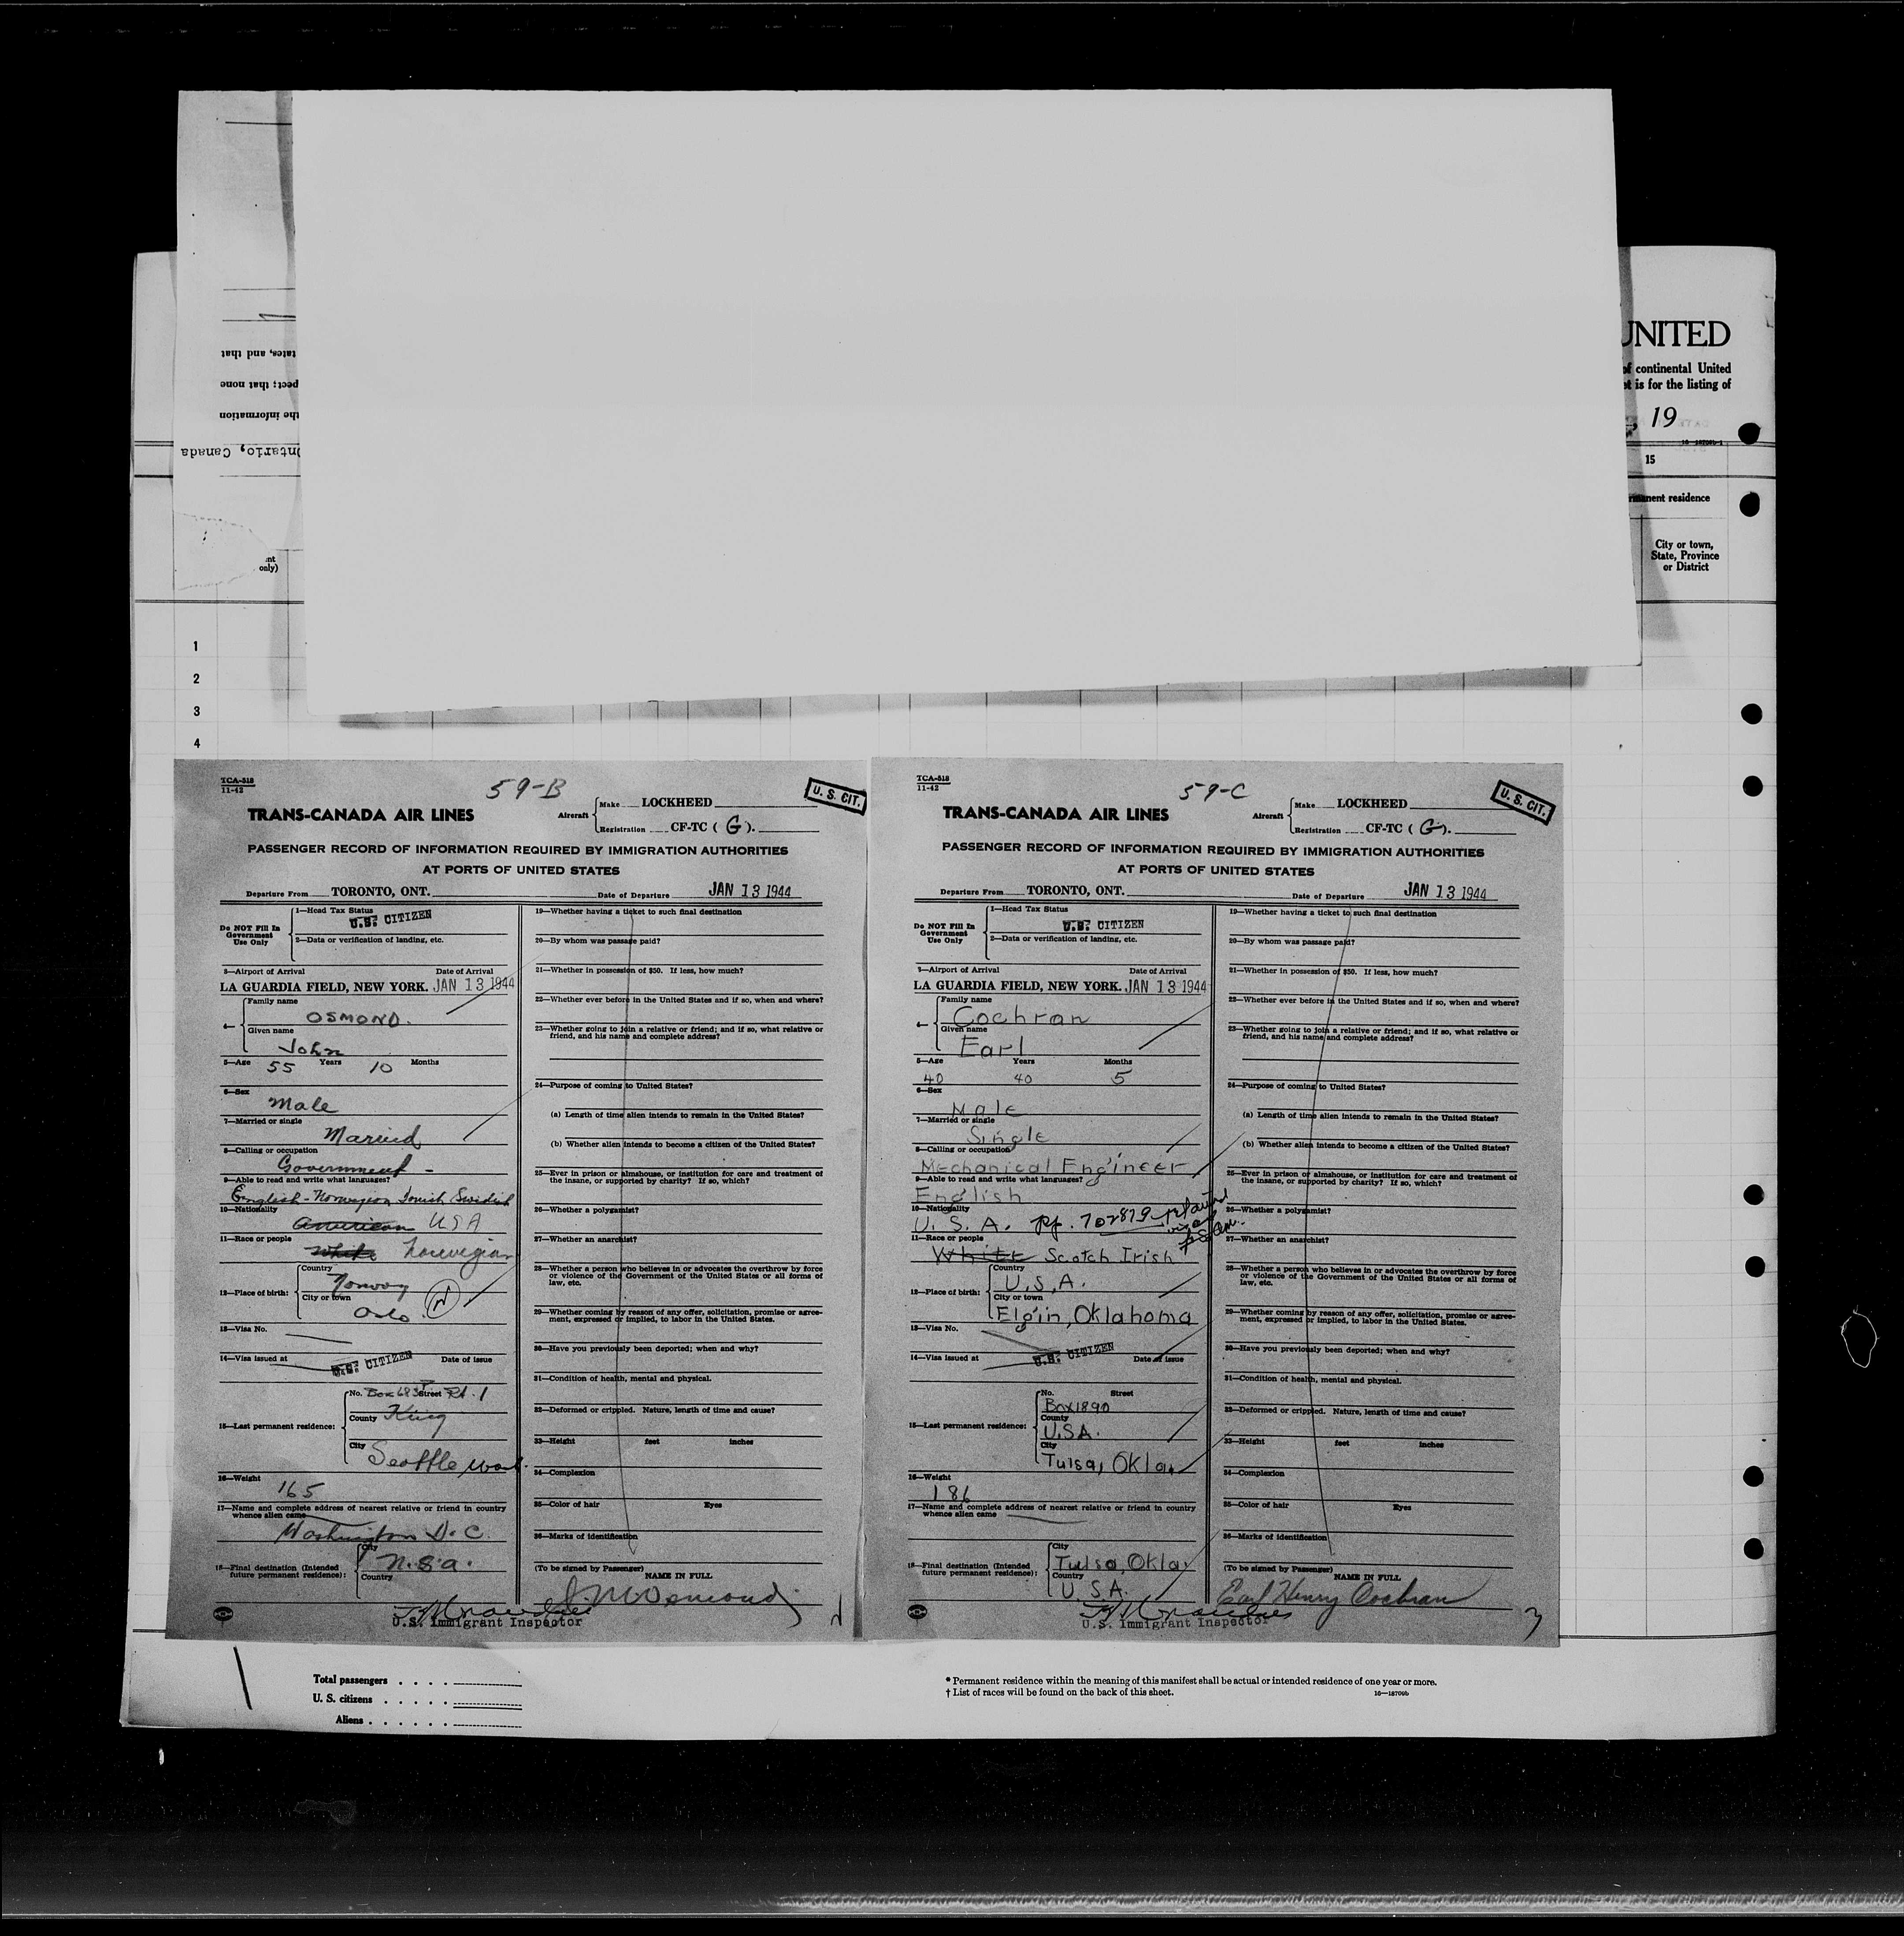 UNITED
of continental United
et is for the listing of
, 19
15
rmanent residence
City or town,
State, Province
or District
tates, and that
pect; that none
the information
Ontario, Canada
nt
only)
1
2
3
4
TCA-518
11-42
59-B
U. S. CIT.
TRANS-CANADA AIR LINES
Aircraft
Make LOCKHEED
Registration CF-TC ( G ).
PASSENGER RECORD OF INFORMATION REQUIRED BY IMMIGRATION AUTHORITIES
AT PORTS OF UNITED STATES
Departure From TORONTO, ONT. Date of Departure JAN 13 1944
Do NOT Fill In
Government
Use Only
1—Head Tax Status
U.S. CITIZEN
2—Data or verification of landing, etc.
3—Airport of Arrival Date of Arrival
LA GUARDIA FIELD, NEW YORK. JAN 13 1944
4— Family name
OSMOND.
Given name
John
5—Age 55 Years 10 Months
6—Sex
Male
7—Married or single
Married
8—Calling or occupation
Government -
9—Able to read and write what languages?
English - Norwegian Danish Swedish
10—Nationality
American USA
11—Race or people
White Norwegian
12—Place of birth:
Country
Norway
City or town
Oslo. N
13—Visa No.
14—Visa issued at U.S. CITIZEN Date of issue
15—Last permanent residence:
No. Box 683 Street Rt. 1
County King
City Seattle Wash.
16—Weight
165
17—Name and complete address of nearest relative or friend in country
whence alien came
Washington D.C.
18—Final destination (Intended
future permanent residence):
City
U.S.A.
Country
U.S. Immigrant Inspector
19—Whether having a ticket to such final destination
20—By whom was passage paid?
21—Whether in possession of $50. If less, how much?
22—Whether ever before in the United States and if so, when and where?
23—Whether going to join a relative or friend; and if so, what relative or
friend, and his name and complete address?
24—Purpose of coming to United States?
(a) Length of time alien intends to remain in the United States?
(b) Whether alien intends to become a citizen of the United States?
25—Ever in prison or almshouse, or institution for care and treatment of
the insane, or supported by charity? If so, which?
26—Whether a polygamist?
27—Whether an anarchist?
28—Whether a person who believes in or advocates the overthrow by force
or violence of the Government of the United States or all forms of
law, etc.
29—Whether coming by reason of any offer, solicitation, promise or agree-
ment, expressed or implied, to labor in the United States.
30—Have you previously been deported; when and why?
31—Condition of health, mental and physical.
32—Deformed or crippled. Nature, length of time and cause?
33—Height feet inches
34—Complexion
35—Color of hair Eyes
36—Marks of identification
(To be signed by Passenger)
NAME IN FULL
J. M. Osmond
TCA-518
11-42
59-C
U. S. CIT.
TRANS-CANADA AIR LINES
Aircraft
Make LOCKHEED
Registration CF-TC ( G ).
PASSENGER RECORD OF INFORMATION REQUIRED BY IMMIGRATION AUTHORITIES
AT PORTS OF UNITED STATES
Departure From TORONTO, ONT. Date of Departure JAN 13 1944
Do NOT Fill In
Government
Use Only
1—Head Tax Status
U.S. CITIZEN
2—Data or verification of landing, etc.
3—Airport of Arrival Date of Arrival
LA GUARDIA FIELD, NEW YORK. JAN 13 1944
4— Family name
Cochran
Given name
Earl
5—Age Years Months
40 40 5
6—Sex
Male
7—Married or single
Single
8—Calling or occupation
Mechanical Engineer
9—Able to read and write what languages?
English
10—Nationality
U. S. A. pp. 702879
11—Race or people
White Scotch Irish
12—Place of birth:
Country
U.S.A.
City or town
Elgin, Oklahoma
13—Visa No.
14—Visa issued at U.S. CITIZEN Date of issue
15—Last permanent residence:
No. Street
Box 1890
County
U.S.A.
City
Tulsa, Okla.
16—Weight
186
17—Name and complete address of nearest relative or friend in country
whence alien came
18—Final destination (Intended
future permanent residence):
City
Tulsa, Okla.
Country
U.S.A.
U.S. Immigrant Inspector
19—Whether having a ticket to such final destination
20—By whom was passage paid?
21—Whether in possession of $50. If less, how much?
22—Whether ever before in the United States and if so, when and where?
23—Whether going to join a relative or friend; and if so, what relative or
friend, and his name and complete address?
24—Purpose of coming to United States?
(a) Length of time alien intends to remain in the United States?
(b) Whether alien intends to become a citizen of the United States?
25—Ever in prison or almshouse, or institution for care and treatment of
the insane, or supported by charity? If so, which?
26—Whether a polygamist?
27—Whether an anarchist?
28—Whether a person who believes in or advocates the overthrow by force
or violence of the Government of the United States or all forms of
law, etc.
29—Whether coming by reason of any offer, solicitation, promise or agree-
ment, expressed or implied, to labor in the United States.
30—Have you previously been deported; when and why?
31—Condition of health, mental and physical.
32—Deformed or crippled. Nature, length of time and cause?
33—Height feet inches
34—Complexion
35—Color of hair Eyes
36—Marks of identification
(To be signed by Passenger)
NAME IN FULL
Earl Henry Cochran
3
Total passengers . . . .
U. S. citizens . . . . .
Aliens . . . . . .
* Permanent residence within the meaning of this manifest shall be actual or intended residence of one year or more.
† List of races will be found on the back of this sheet.
16—18709b